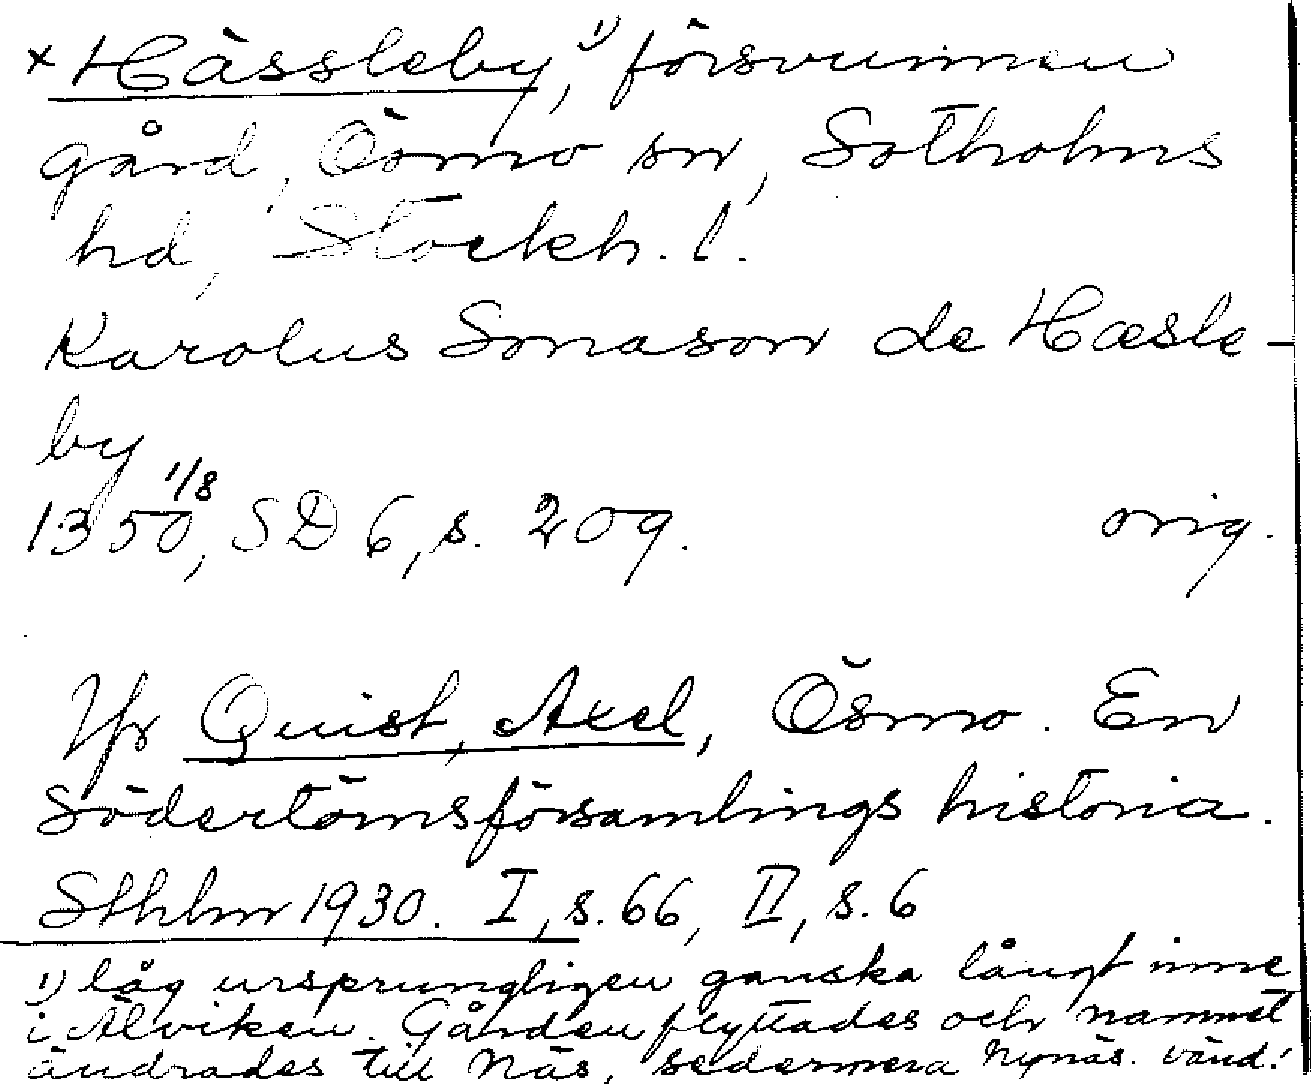 × Hässleby,¹⁾ försvunnen
gård, Ösmo sn, Sotholms
hd, Stockh. l.
Karolus Sonason de Hæsle-
by
1350 1/8, SD 6, s. 209. orig.
Jfr Quist, Axel, Ösmo. En
Södertörnsförsamlings historia.
Sthlm 1930. I, s. 66, II, s. 6
1) låg ursprungligen ganska långt inne
i Älviken. Gården flyttades och namnet
ändrades till Näs, sedermera Nynäs. Vänd!